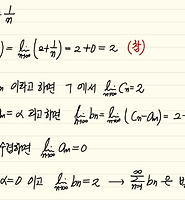 = 1/n
) = lim_{n→∞} (2+1/n) = 2+0 = 2 (참)
n 이라고 하면 ㄱ에서 lim_{n→∞} C_n = 2
a_n = α 라고 하면 lim_{n→∞} b_n = lim_{n→∞} (C_n - a_n) = 2 -
수렴하면 lim_{n→∞} a_n = 0
α=0 이고 lim_{n→∞} b_n = 2 → ∞ Σ n=1 b_n 은